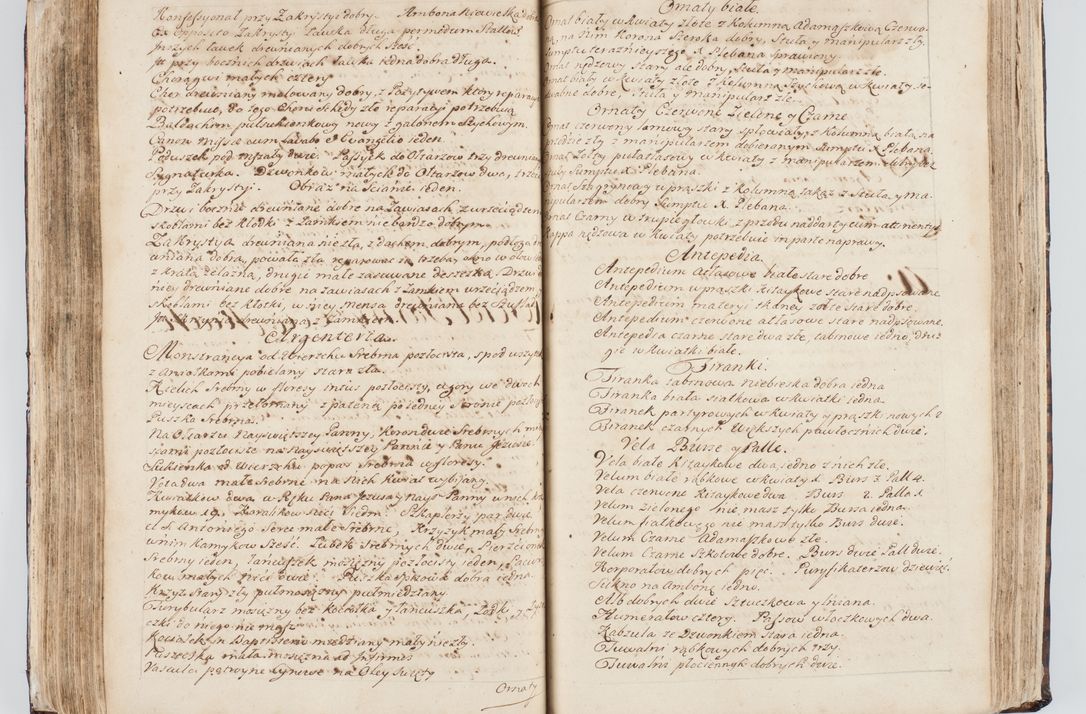 Konfessyonał przy Zakrystyi dobry. Ambona niewielka dobra
Ex opposito Zakrysty Ławka długa per modum Stallow
Inszych ławek drewnianych dobrych Szesc.
It przy bocznich drzwiach ławka jedna dobra długa.
Chorągwi małych cztery
Chor drewniany malowany dobry, z Pozytywem ktory reparacyi
potrzebuie, Do tego Choru Schody złe reparacyi potrzebuią
Baldachim pułsuknienkowy nowy z galonem Szychowym.
Canon Missae cum Lavabo et Evangelio jeden.
Poduszek pod Mszały dwie. Passyjek do Ołtarzow trzy drewnian
Sygnaturka. Dzwonkow małych do Ołtarzow dwa, trzeci
przy Zakrystyi. Obraz na Scianie jeden.
Drzwi boczne drewniane dobre na Zawiasach z wrzeciądzem
skoblami bez Klodki z Zamkiem nie bardzo dobrym.
Zakrystya drewniana nie zła, z dachem dobrym, podłoga
wniana dobra, powała zła reparowac ią trzeba, okno w ołow
z kratą żelazną, drugie małe zasuwane deszczką. Drzwi
niey drewniane dobre na zawiasach z Zamkiem wrzeciądzem,
skoblami bez klotki, w niey mensa drewniana bez Szuflad
drewniana z Zamkiem.
Argenteria.
Monstrancya od Wierzchu Srebrna pozłocista, spod
z Aniołkami pobielany stara zła.
Kielich Srebrny w floresy intus pozłocisty, u gory we dwoch
mieyscach przełomany z pateną po jedney stronie pozłoc
Puszka Srebrna.
Na Ołtarzu Nayswiętszey Panny, Koron dwie Srebrnych mie
scami pozłociste na Nayswiętszey Pannie y Panu Jezusie.
Sukienka od Wierzchu popas Srebrna w floresy.
Vota dwa małe Srebrne na nich Kwiat wybijany.
Karalikow dwa w Ręku Pana Jezusa y Nays Panny w nich ka
mykow 19. Karalikow nici siedm. Szkaplerzy par dwie
et S. Antoniego Serce małe Srebrne, Krzyżyk mały Srebrny
w nim Kamykow Szesć. Tabelki Srebrnych dwie, Pierscionek
Srebrny jeden, łancuszek mosiężny pozłocisty jeden
kow małych nici dwie. Puszka dobra jedna.
Krzyż Stary zły pułmosiężny pułmiedziany
Turybularz mosiężny bez Kołka y łancuszka, Łodki y Łyż
czki do niego nie masz
Kociołek in Baptisterio miedziany mały nie zły.
Puszeczka mała mosiężna ad Infirmos
Vascula potroyne cynowe na Oley Swięty
Ornaty

Ornaty białe.
Ornat biały w kwiaty złote z kolumną Adamaszkową Czerwo
ną, na nim Korona Szeroka dobry, Stuła y manipularz zły,
Sumptu teraznieyszego X. Plebana sprawiony.
Ornat rędzewy Stary ale dobry, Stuła y manipularz złe.
Ornat biały w kwiaty złote z kolumną Szychową w kwiaty je-
dwabne dobre, Stuła y manipularz złe.
Ornaty Czerwone Zielone y Czarne
Ornat czerwony lamowy stary spłowiały, z kolumną białą na
przedzie zły z manipularzem dobieranym Sumptu X. Plebana.
Ornat żołty pułatlasowy w kwiaty z manipularzem
Stuły Sumptu X. Plebana.
Ornat Szkarłatnowy w prążki z kolumną takąż z Stułą, y ma-
nipularzem dobry Sumptu X. Plebana.
Ornat Czarny w trupie głowki, z przodu naddarty cum attinentys
Kappa rędzowa w kwiaty potrzebuie in parte naprawy.
Antepedia.
Antepedium atlasowe białe stare dobre
Antepedium w prążki kitaykowe stare nadpsowane
Antepedium materyi tkaney żołte stare dobre.
Antepedium czerwone atlasowe stare nadpsowane.
Antepedia czarne stare dwa złe, tabinowe jedno, dru
gie w kwiatki białe.
Firanki.
Firanka zasłonowa niebieska dobra jedna
Firanka biała siatkowa w kwiatki jedna
Firanek partyrowych w kwiaty y prążki nowych 2
Firanek czarnych większych płociennich dwie.
Vela Burse y Palle.
Vela białe kitaykowe dwa, jedno z nich złe.
Velum białe rąbkowe w kwiaty 1. Burs 3 Pall 4.
Vela czerwone kitaykowe dwa Burs 2. Palla 1
Velum zielonego nie masz tylko Bursa jedna.
Velum fiałkowego nie masz tylko Burs dwie.
Velum Czarne Adamaszkowe złe.
Velum Czarne Szkotowe dobre. Burs dwie Pall dwie.
Korporałow dobrych pięc. Puryfikaterzow dziewięc.
Sukno na Ambonę jedno.
Alb dobrych dwie Sztuczkowa y lniana.
Humerałow cztery. Passow włoczkowych dwa.
Kabzula ze Dzwonkiem stara jedna.
Tuwalni rąbkowych dobrych trzy.
Tuwalnia płociennych dobrych dwie.